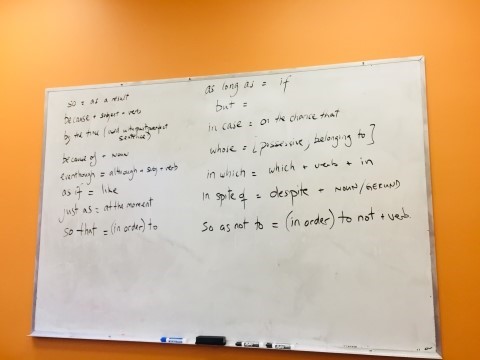 so = as a result
because + subject + verb
by the time (used with past perfect
sentence)
because of + noun
eventhough = although + subj + verb
as if = like
just as = at the moment
so that = (in order) to
as long as = if
but =
in case = on the chance that
whose = [possessive, belonging to]
in which = which + verb + in
In spite of = despite + NOUN/GERUND
So as not to = (in order) to not + verb